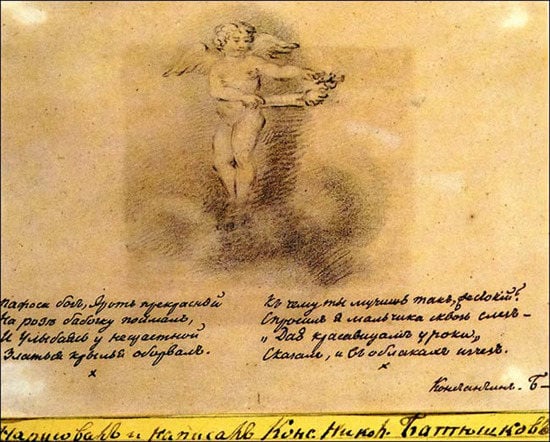 Пафоса богъ, Эротъ прекрасный
На розѣ бабочку поймалъ,
И улыбаясь у нещастной
Златыя крылья оборвалъ.
x
Къ чему ты мучишь такъ, жестокій?
Спросилъ я мальчика сквозь слезъ —
„Даю красавицамъ уроки„
Сказалъ, и въ облакахъ изчезъ.
x
Константинъ. Б—
Нарисовалъ и написалъ Конс. Никол. Батюшковъ